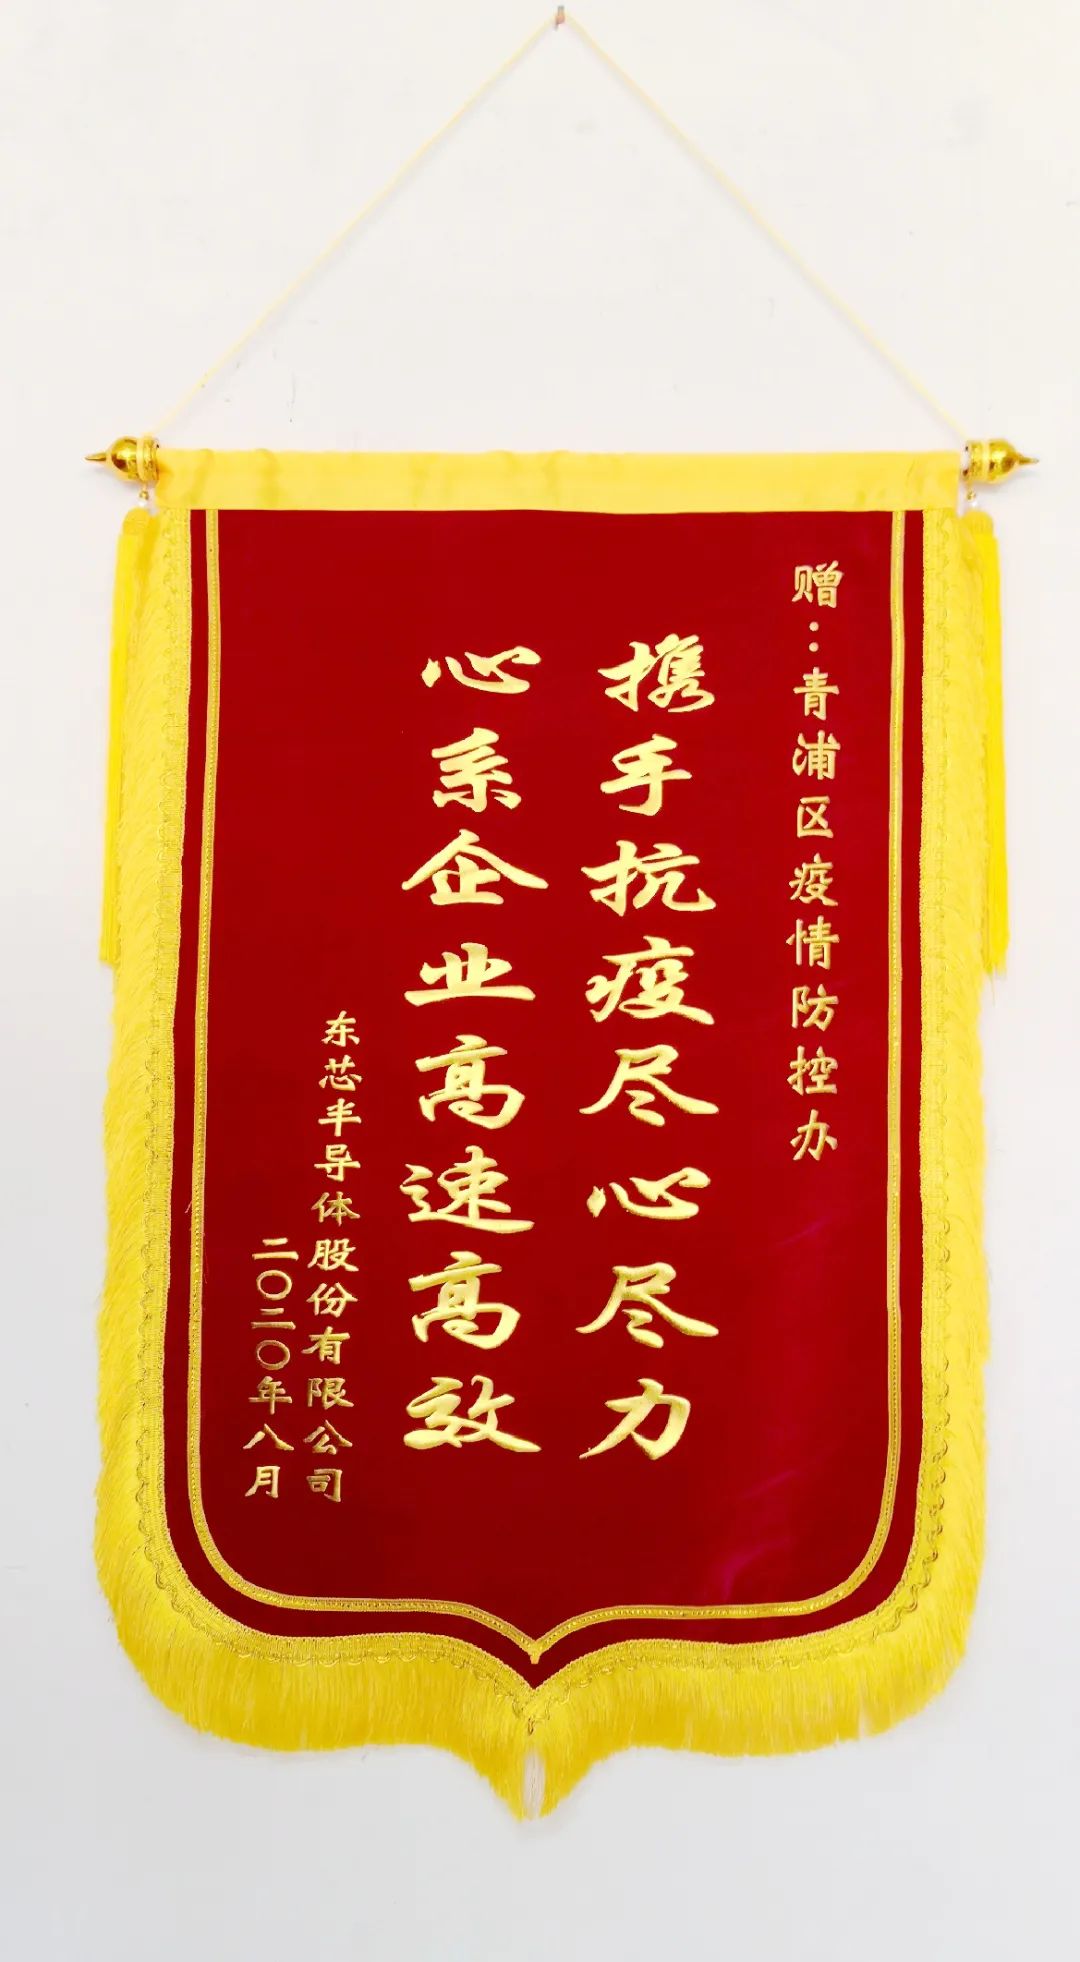 赠：青浦区疫情防控办
携手抗疫尽心尽力
心系企业高速高效
东芯半导体股份有限公司
二〇二〇年八月